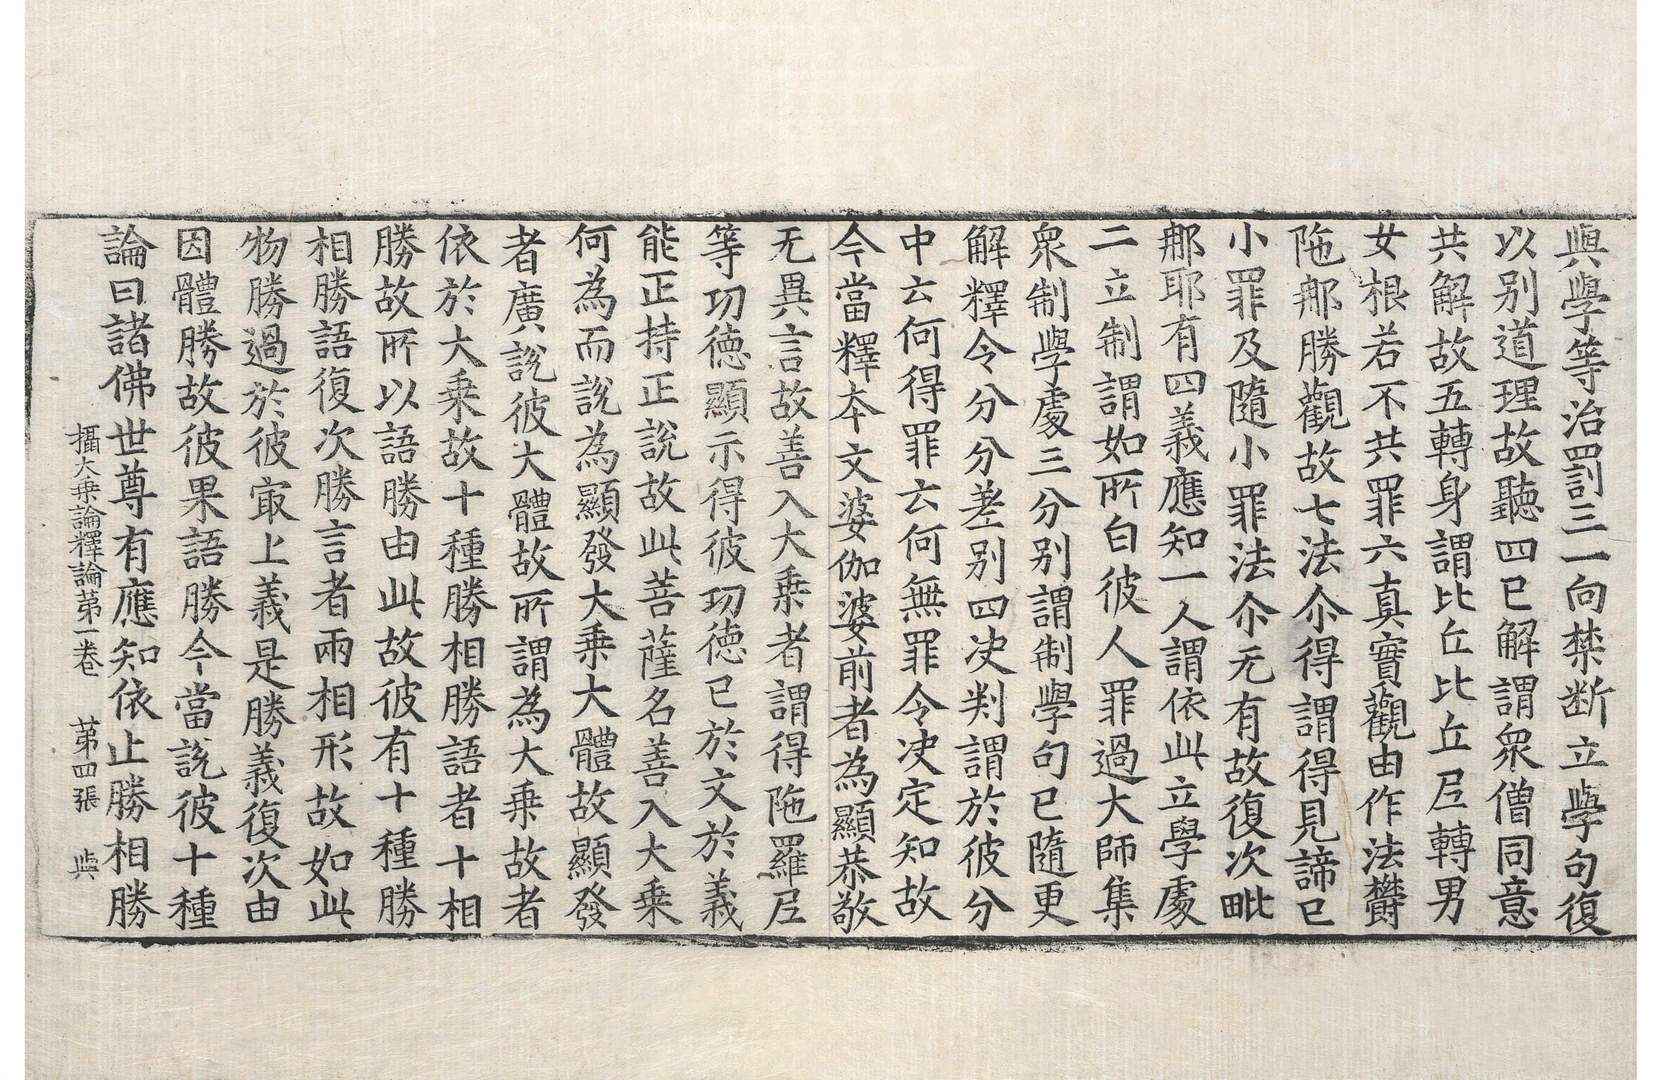 與學等治罰三一向禁断立學句復
以别道理故聽四已解謂衆僧同意
共解故五轉身謂比丘比丘𡰱轉男
女根若不共罪六真實觀由作法欝
陁那勝觀故七法尒得謂得見諦已
小罪及隨小罪法尒无有故復次毗
那耶有四義應知一人謂依此立學處
二立制謂如所白彼人罪過大師集
衆制學處三分别謂制學句已隨更
解釋令分分差别四决判謂於彼分
中云何得罪云何無罪令决定知故
今當釋夲文婆伽婆前者為顯恭敬
无異言故善入大乗者謂得陁羅𡰱
等㓛德顯示得彼㓛德已於文於義
能正持正說故此菩薩名善入大乗
何為而說為顯發大乗大體故顯發
者廣說彼大體故所謂為大乗故者
依於大乗故十種勝相勝語者十相
勝故所以語勝由此故彼有十種勝
相勝語復次勝言者兩相形故如此
物勝過於彼㝡上義是勝義復次由
因體勝故彼果語勝今當說彼十種
論曰諸佛世尊有應知依止勝相勝
攝大乗論釋論苐一卷　苐四張　與